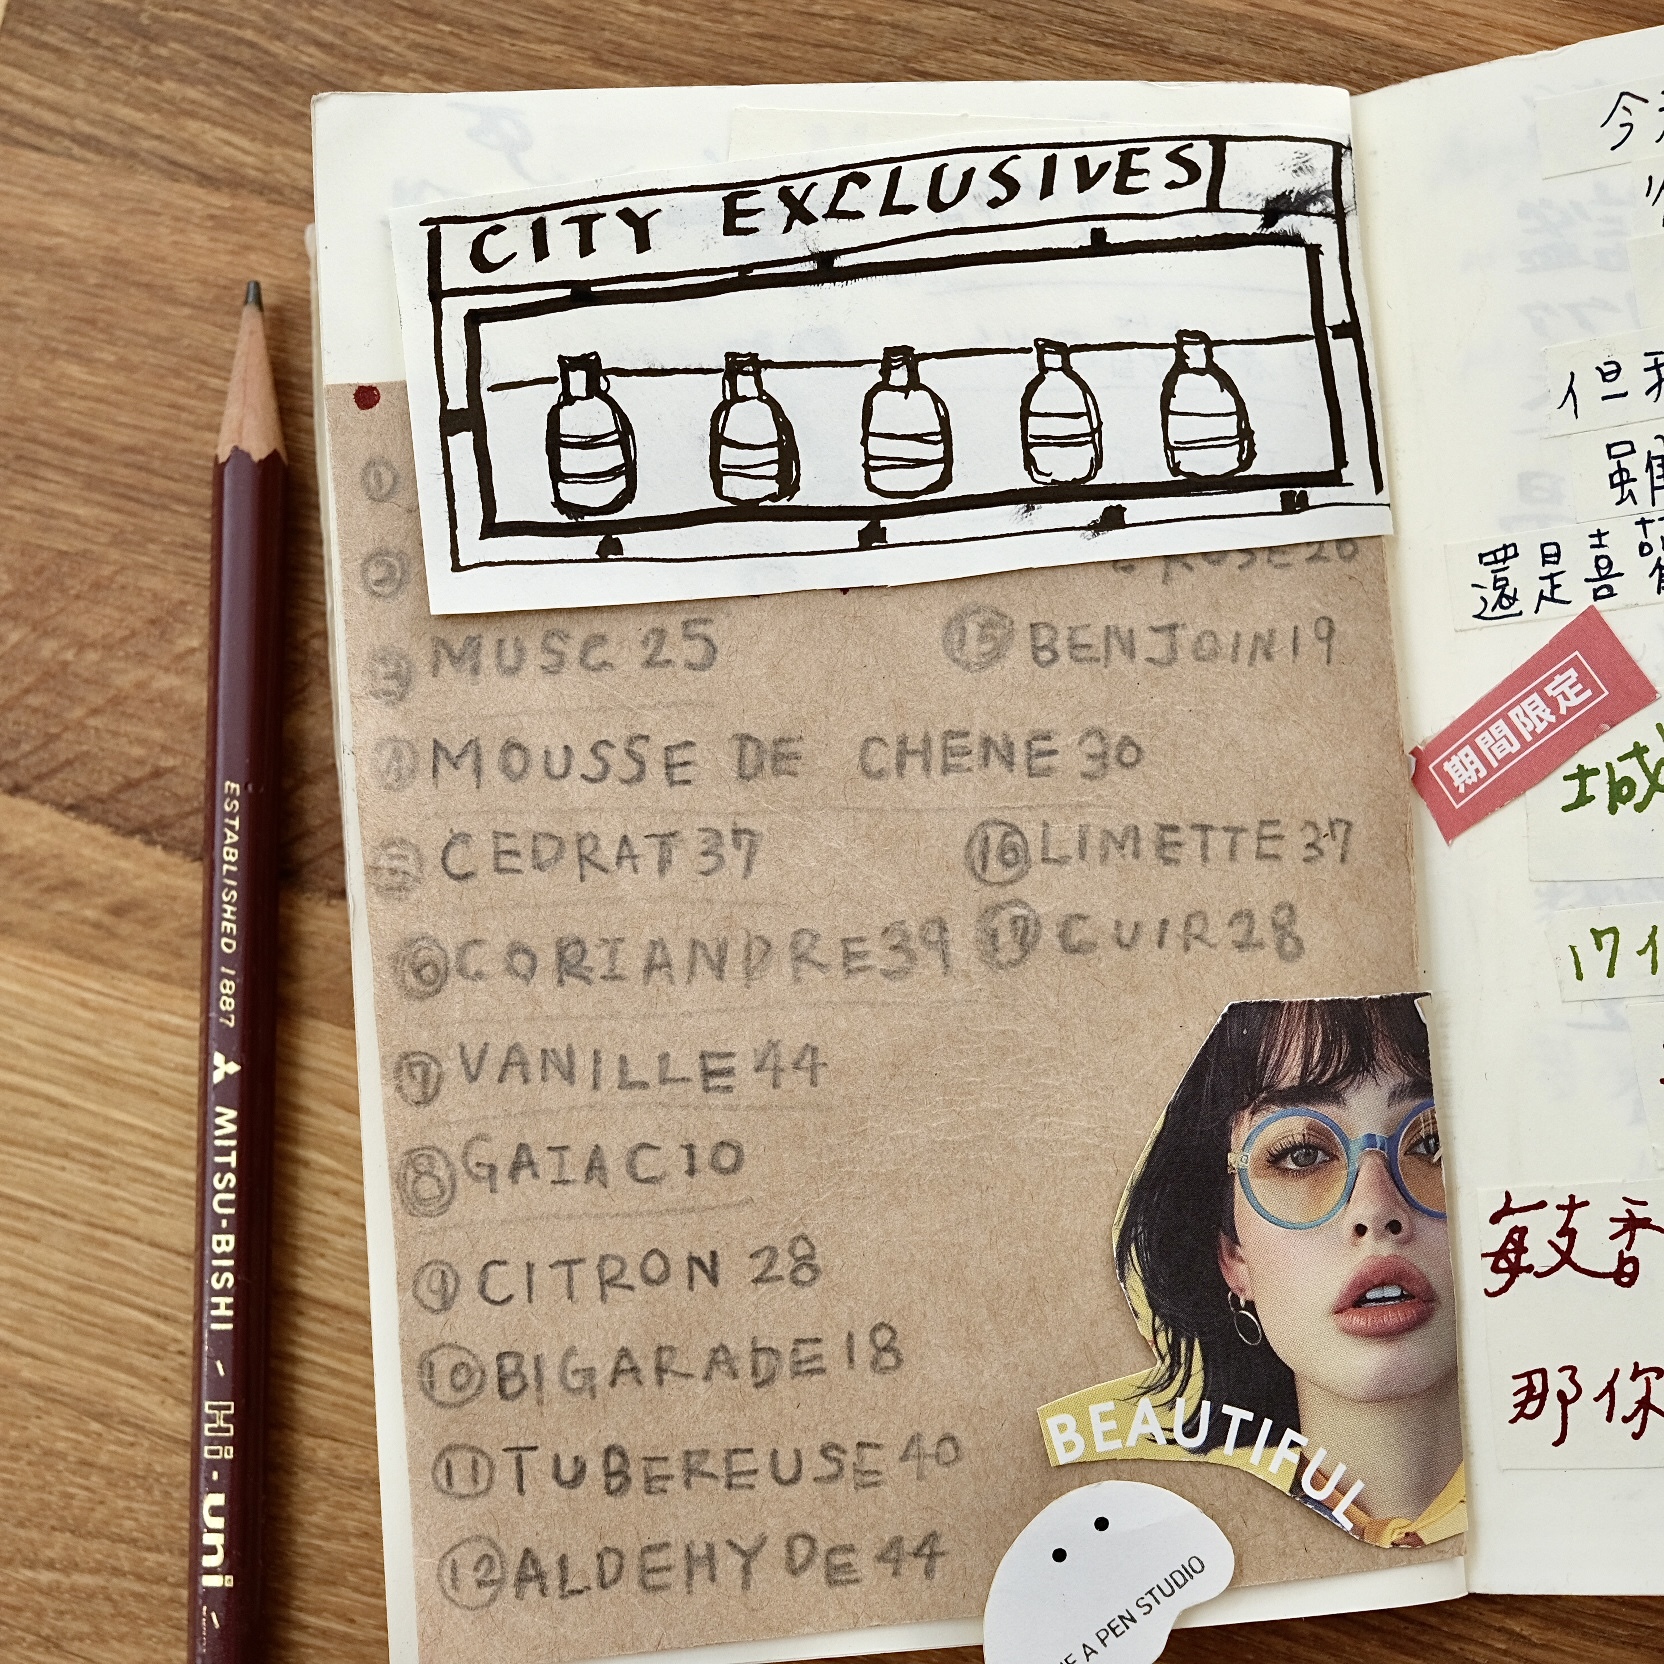 CITY EXCLUSIVES
①
②
ROSE 26
③ MUSC 25
⑮ BENJOIN 19
④ MOUSSE DE CHENE 30
⑤ CEDRAT 37
⑯ LIMETTE 37
⑥ CORIANDRE 39
⑰ CUIR 28
⑦ VANILLE 44
⑧ GAIAC 10
⑨ CITRON 28
⑩ BIGARADE 18
⑪ TUBEREUSE 40
⑫ ALDEHYDE 44
BEAUTIFUL
A PEN STUDIO
ESTABLISHED 1887 MITSU-BISHI - Hi-uni -
今
但我
雖
還是喜
期間限定
城
17
每支香
那你